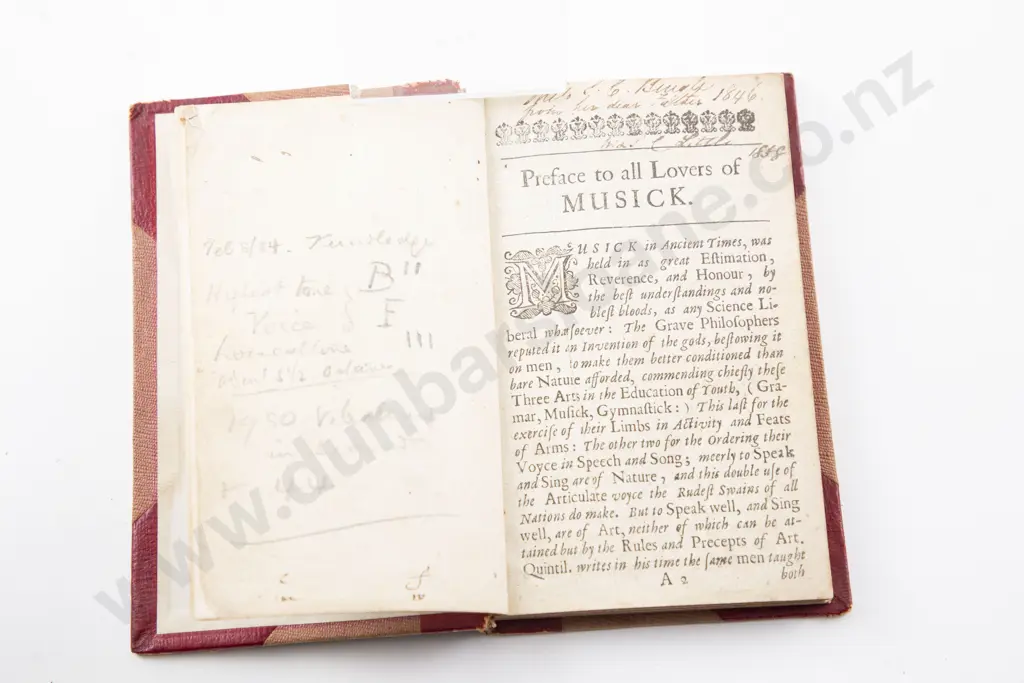 from her dear Father 1846.
Little 1858
Preface to all Lovers of
MUSICK.
MUSICK in Ancient Times, was
held in as great Estimation,
Reverence, and Honour, by
the best understandings and no-
blest bloods, as any Science Li-
beral whatsoever: The Grave Philosophers
reputed it an Invention of the gods, bestowing it
on men, to make them better conditioned than
bare Nature afforded, commending chiefly these
Three Arts in the Education of Youth, (Gra-
mar, Musick, Gymnastick:) This last for the
exercise of their Limbs in Activity and Feats
of Arms: The other two for the Ordering their
Voyce in Speech and Song; meerly to Speak
and Sing are of Nature, and this double use of
the Articulate voyce the Rudest Swains of all
Nations do make. But to Speak well, and Sing
well, are of Art, neither of which can be at-
tained but by the Rules and Precepts of Art.
Quintil. writes in his time the same men taught
A 2
both
Voice
B"
F
III
www.dunbarsloane.co.nz